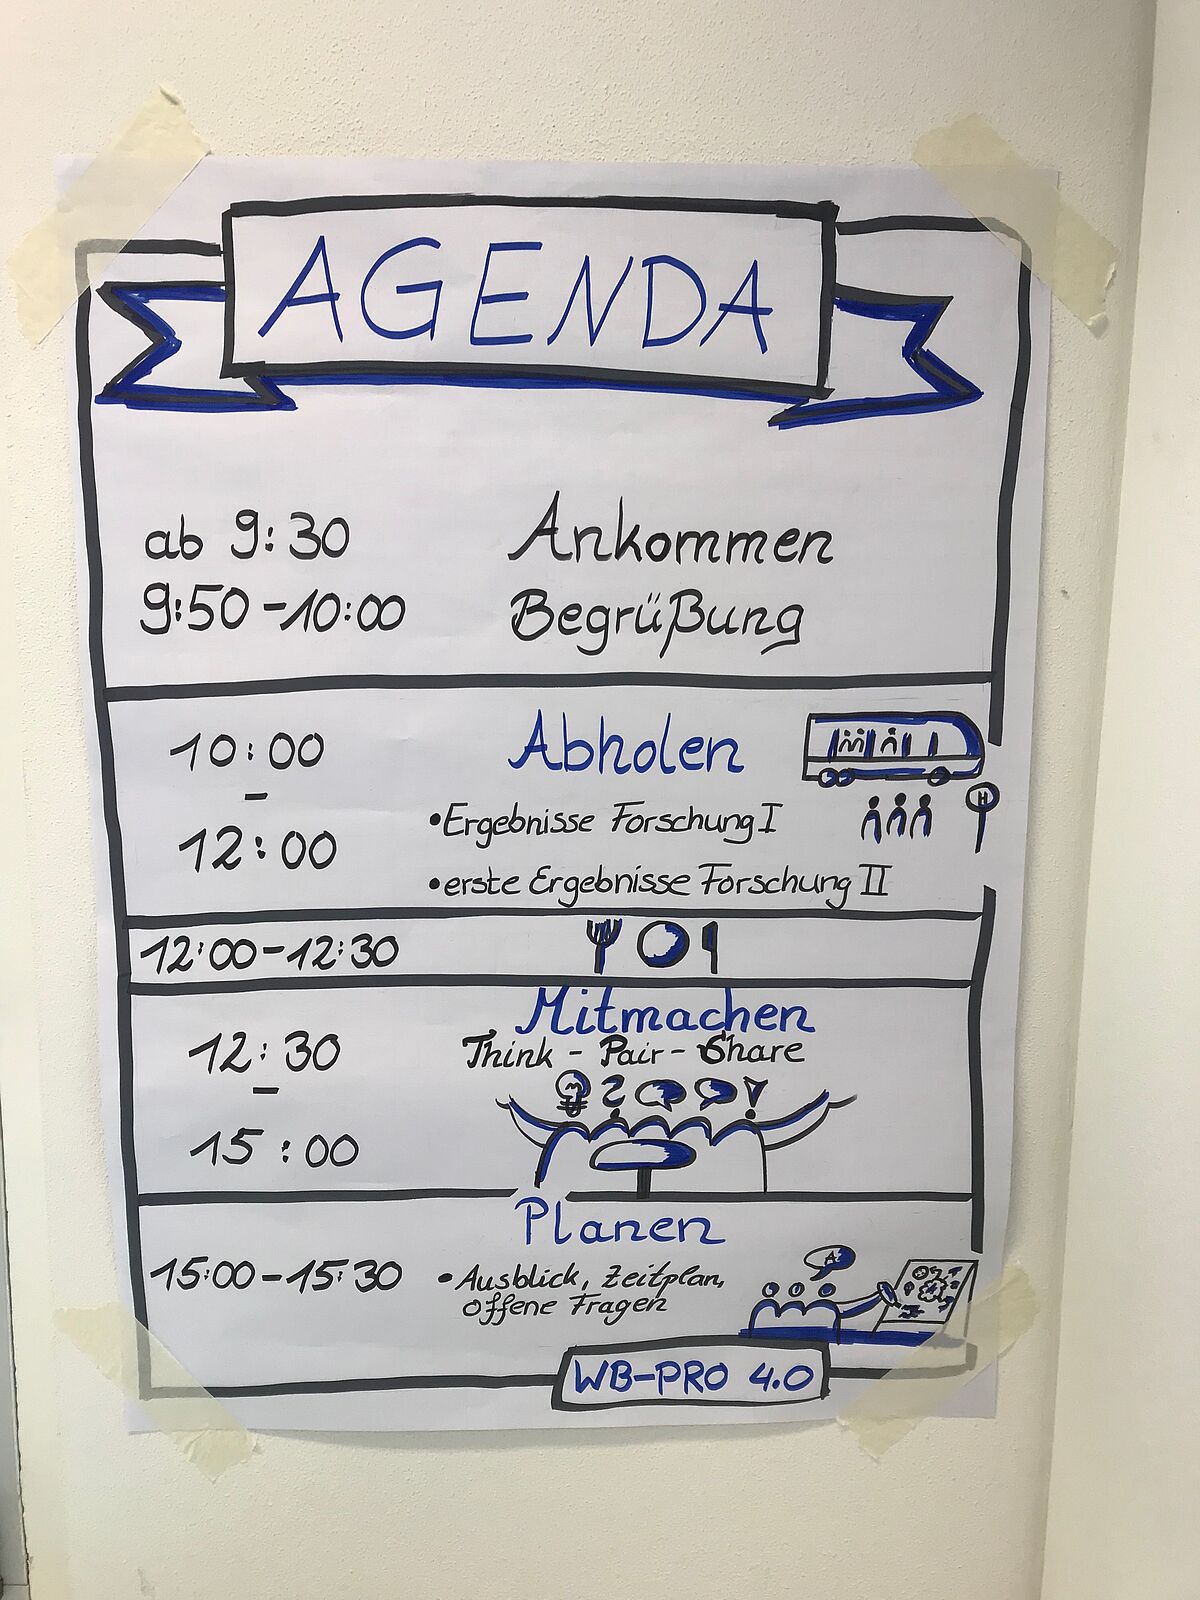 AGENDA
ab 9:30 Ankommen
9:50-10:00 Begrüßung
10:00 - 12:00
Abholen
H
•Ergebnisse Forschung I
•erste Ergebnisse Forschung II
12:00-12:30
12:30 - 15:00
Mitmachen
Think - Pair - Share
Planen
15:00-15:30
•Ausblick, Zeitplan,
offene Fragen
WB-PRO 4.0